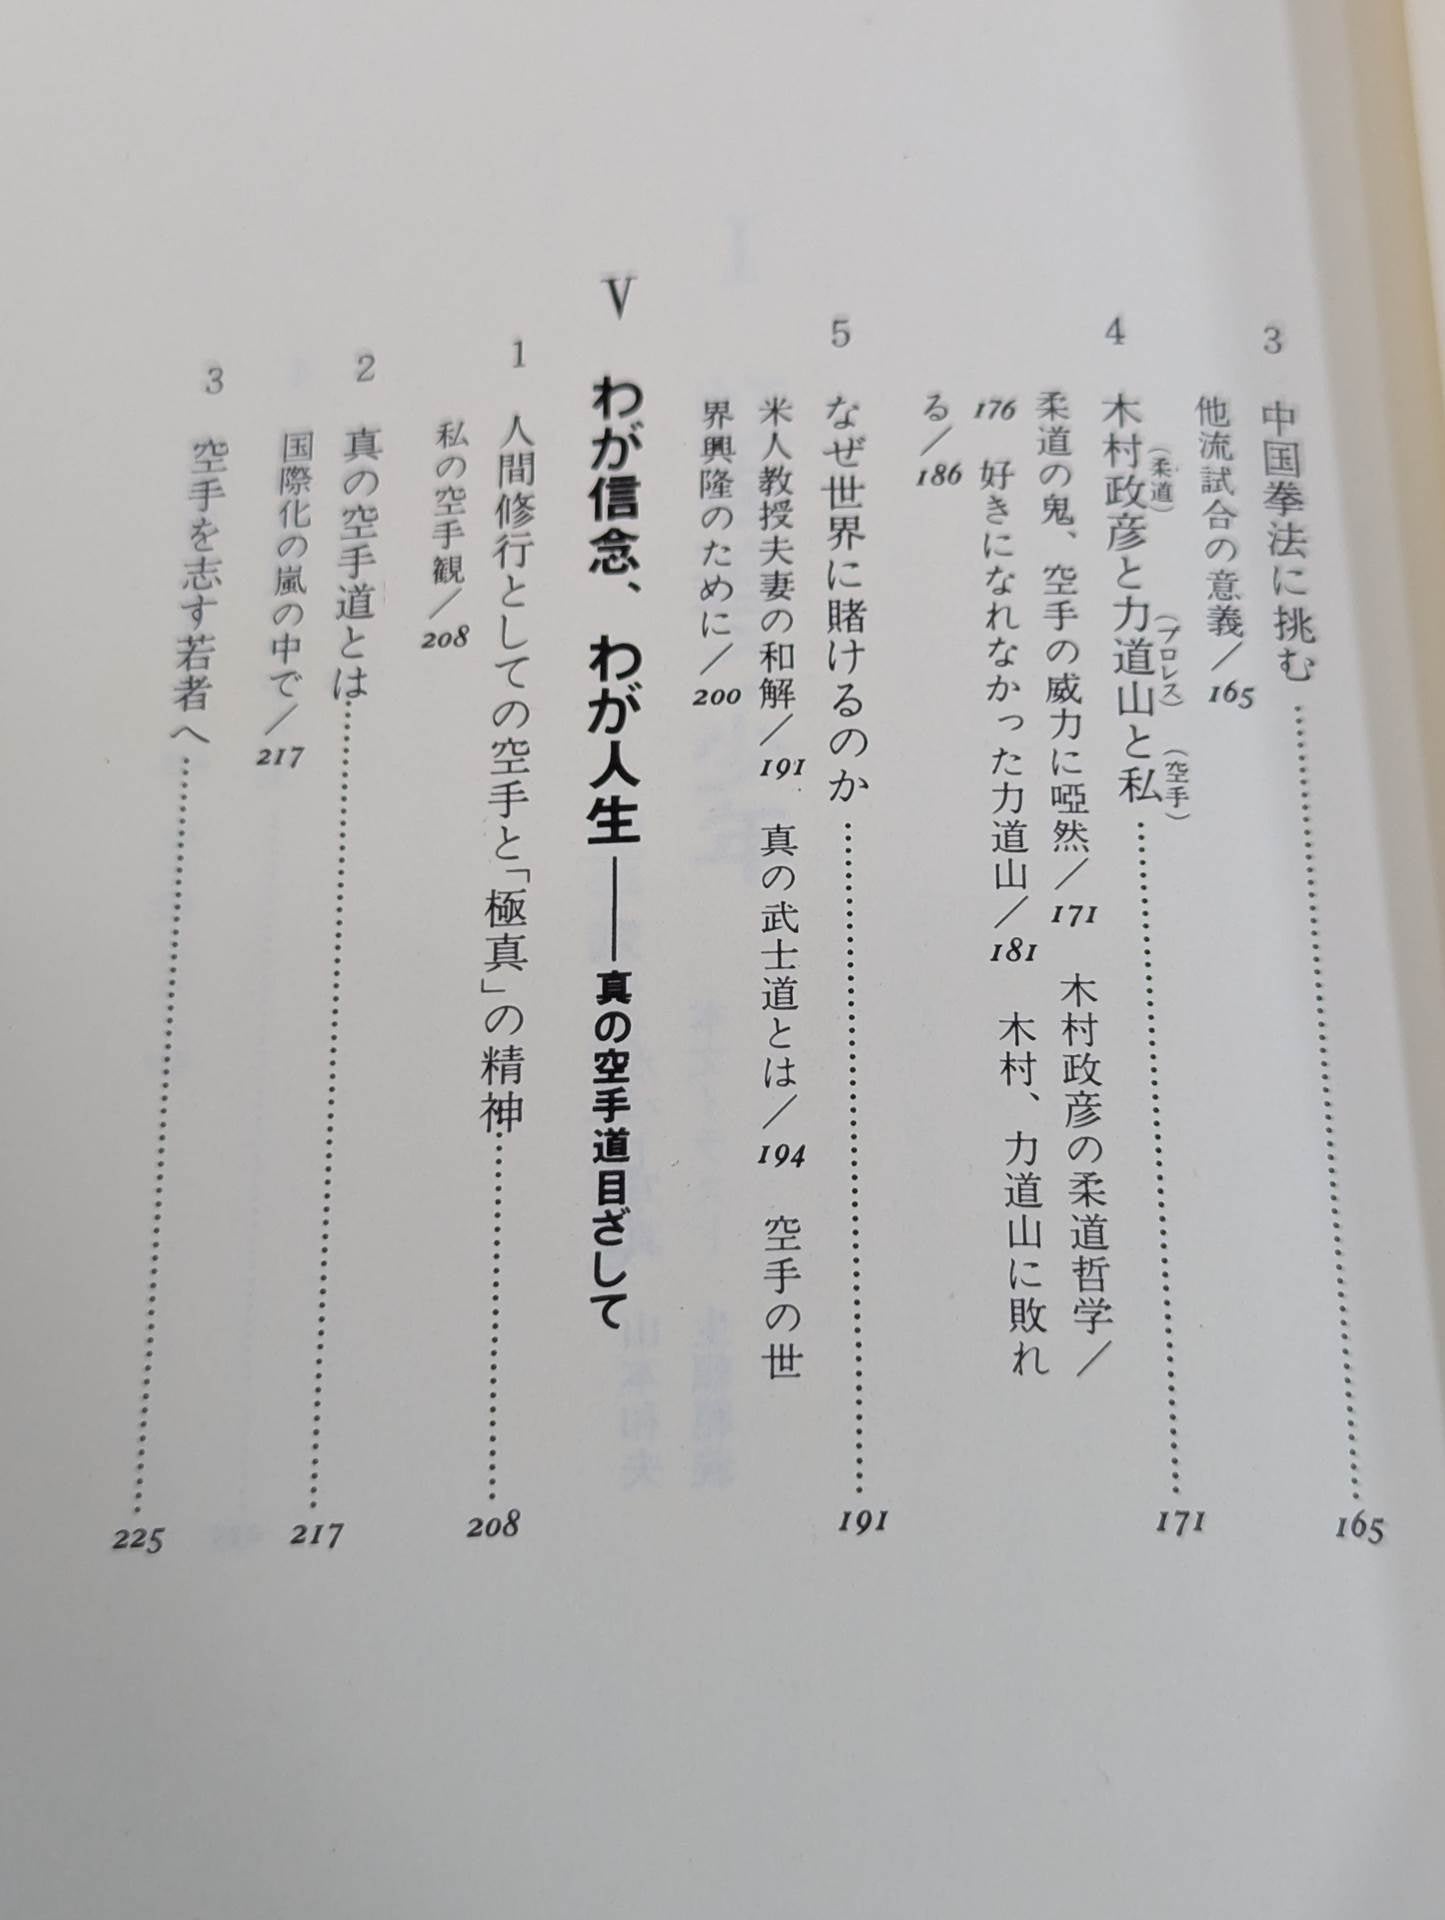 3 中国拳法に挑む……165
他流試合の意義／165
4 木村政彦(柔道)と力道山(プロレス)と私(空手)……171
柔道の鬼、空手の威力に啞然／171 木村政彦の柔道哲学／
176 好きになれなかった力道山／181 木村、力道山に敗れ
る／186
5 なぜ世界に賭けるのか……191
米人教授夫妻の和解／191 真の武士道とは／194 空手の世
界興隆のために／200
V わが信念、わが人生──真の空手道目ざして
1 人間修行としての空手と「極真」の精神……208
私の空手観／208
2 真の空手道とは……217
国際化の嵐の中で／217
3 空手を志す若者へ……225